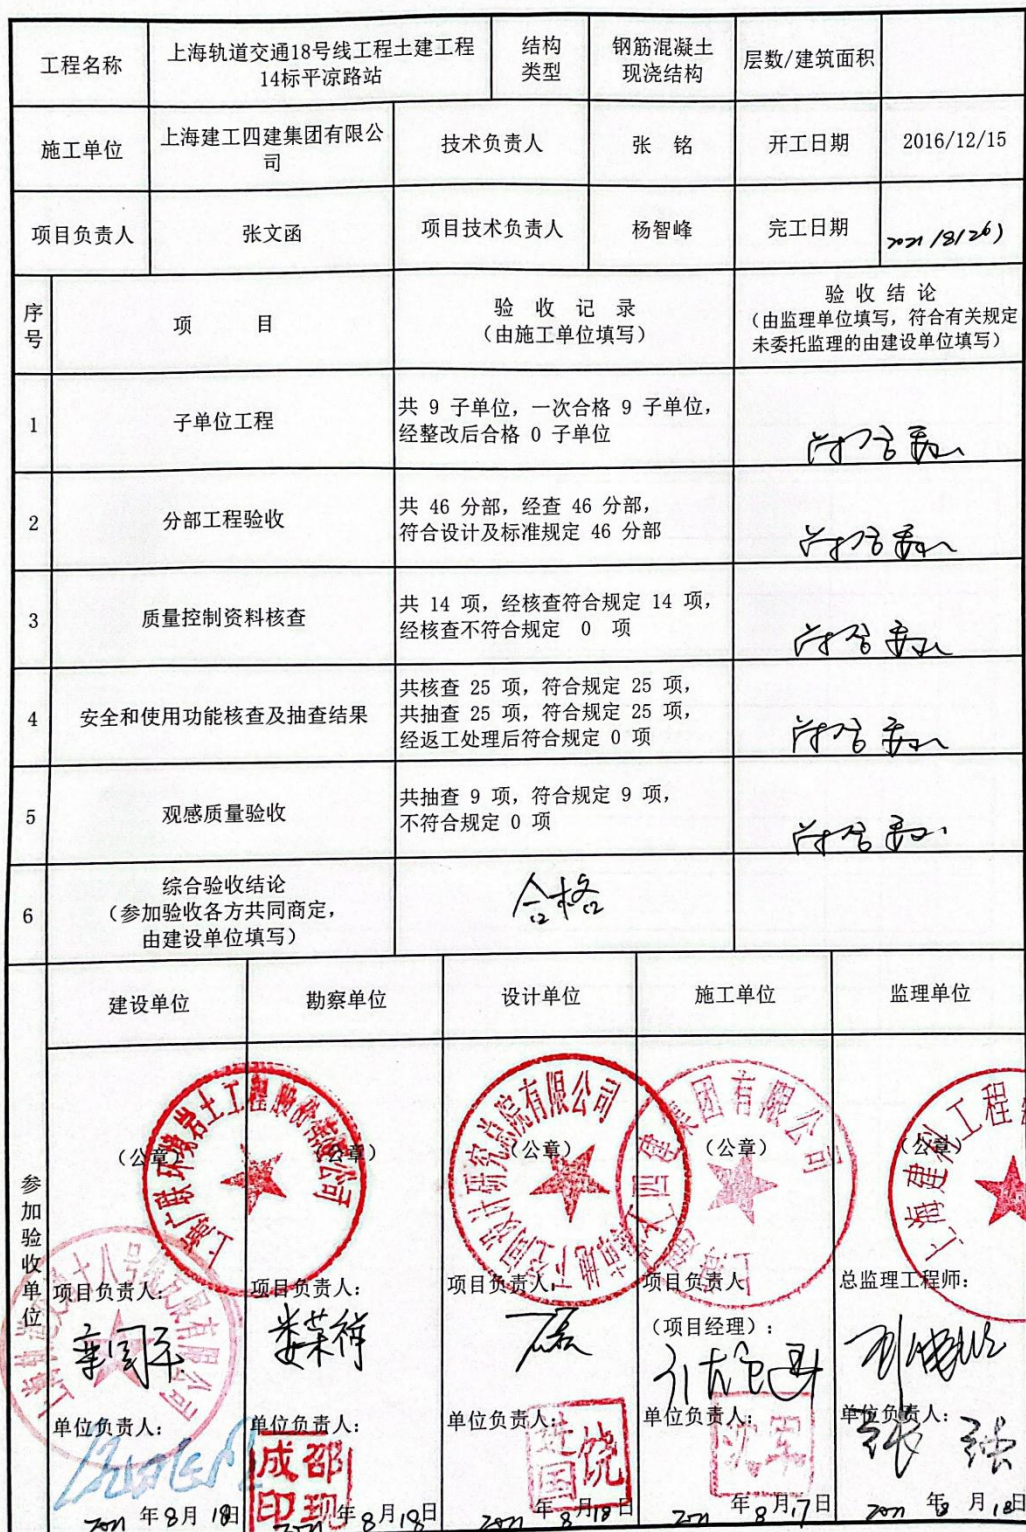 工程名称
上海轨道交通18号线工程土建工程
14标平凉路站
结构
类型
钢筋混凝土
现浇结构
层数/建筑面积
施工单位
上海建工四建集团有限公
司
技术负责人
张 铭
开工日期
2016/12/15
项目负责人
张文函
项目技术负责人
杨智峰
完工日期
2021/8/26
序
号
项 目
验 收 记 录
(由施工单位填写)
验 收 结 论
(由监理单位填写, 符合有关规定
未委托监理的由建设单位填写)
1
子单位工程
共 9 子单位, 一次合格 9 子单位,
经整改后合格 0 子单位
符合要求
2
分部工程验收
共 46 分部, 经查 46 分部,
符合设计及标准规定 46 分部
符合要求
3
质量控制资料核查
共 14 项, 经核查符合规定 14 项,
经核查不符合规定 0 项
符合要求
4
安全和使用功能核查及抽查结果
共核查 25 项, 符合规定 25 项,
共抽查 25 项, 符合规定 25 项,
经返工处理后符合规定 0 项
符合要求
5
观感质量验收
共抽查 9 项, 符合规定 9 项,
不符合规定 0 项
符合要求
6
综合验收结论
(参加验收各方共同商定,
由建设单位填写)
合格
参加验收单位
建设单位
勘察单位
设计单位
施工单位
监理单位
(公章)
(公章)
(公章)
(公章)
(公章)
上海广联环境岩土工程股份有限公司
项目负责人:
项目负责人:
项目负责人:
项目负责人
总监理工程师:
(项目经理):
娄荣祥
单位负责人:
单位负责人:
单位负责人:
单位负责人:
单位负责人:
邵成印现
饶进国
沈军
2021 年 8月 18日
2021 年 8月 18日
2021 年 8月 18日
2021 年 8月 17日
2021 年 8 月 18日